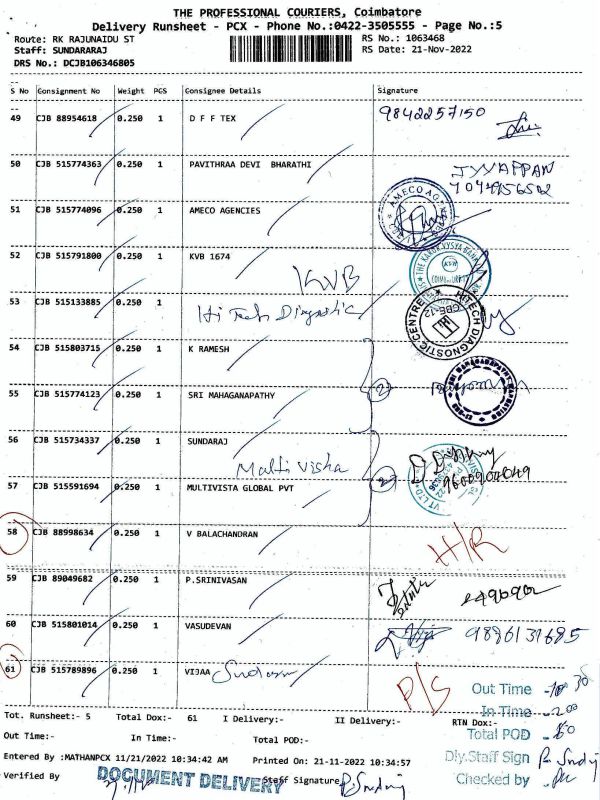 THE PROFESSIONAL COURIERS, Coimbatore
Delivery Runsheet - PCX - Phone No.:0422-3505555 - Page No.:5
Route: RK RAJUNAIDU ST RS No.: 1063468
Staff: SUNDARARAJ RS Date: 21-Nov-2022
DRS No.: DCJB106346805
S No Consignment No Weight PCS Consignee Details Signature
49 CJB 88954618 0.250 1 D F F TEX 9842257150
50 CJB 515774363 0.250 1 PAVITHRAA DEVI BHARATHI
51 CJB 515774096 0.250 1 AMECO AGENCIES AMECO AGEN
52 CJB 515791800 0.250 1 KVB 1674 THE KARUR VYSYA BANK
KVB
53 CJB 515133885 0.250 1 Hi Tech Diagnostic HITECH DIAGNOSTIC CENTRE CBE-12
54 CJB 515803715 0.250 1 K RAMESH
55 CJB 515774123 0.250 1 SRI MAHAGANAPATHY 2
56 CJB 515734337 0.250 1 SUNDARAJ
Malti Visha
57 CJB 515591694 0.250 1 MULTIVISTA GLOBAL PVT 2
58 CJB 88998634 0.250 1 V BALACHANDRAN H/R
59 CJB 89049682 0.250 1 P.SRINIVASAN
60 CJB 515801014 0.250 1 VASUDEVAN
61 CJB 515789896 0.250 1 VIJAA P/S
Out Time
Tot. Runsheet:- 5 Total Dox:- 61 I Delivery:- II Delivery:- RTN Dox:-
In Time - 2.00
Out Time:- In Time:- Total POD:- Total POD
Entered By :MATHANPCX 11/21/2022 10:34:42 AM Printed On: 21-11-2022 10:34:57 Dly.Staff Sign
Verified By DOCUMENT DELIVERY Staff Signature Checked by